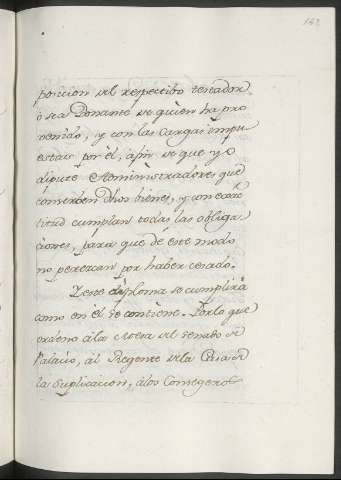 posicion del respectibo testador,
ó sea Donante de quien ha pro
venido, y con las cargas impu
estas por él, afin de que yo
dipute Administradores que
conserben dhos bienes, y con exâc
titud cumplan todas las obliga
ciones, para que de este modo
no perezcan por haber cesado.
Y este diploma se cumplirá
como en el se contiene. Por lo que
ordeno á la Mesa del Senado de
Palacio, al Regente de la Casa de
la Suplicacion, á los Consegeros